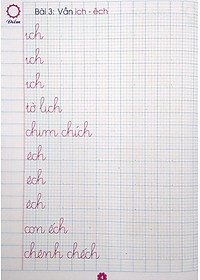 Điểm
Bài 3: Vần ich - êch
ich
ich
ich
tờ lịch
chim chích
êch
êch
êch
con ếch
chênh chếch
4